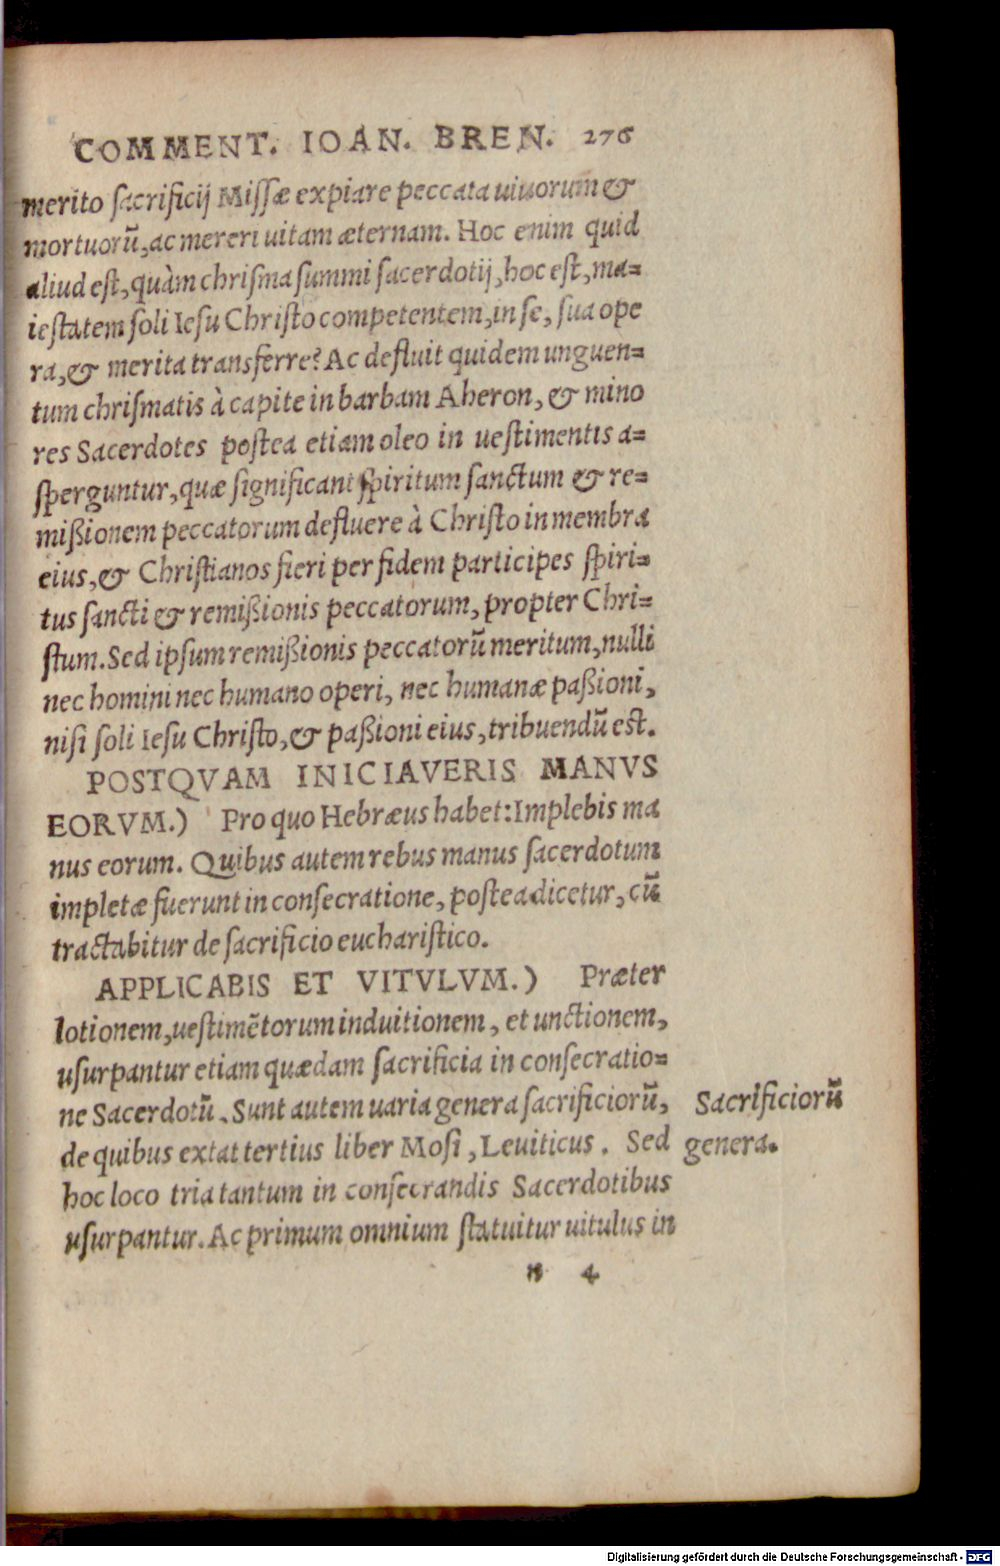 COMMENT. IOAN. BREN. 276
merito sacrificij Missæ expiare peccata uiuorum &
mortuorũ, ac mereri uitam æternam. Hoc enim quid
aliud est, quàm chrisma summi sacerdotij, hoc est, ma=
iestatem soli Iesu Christo competentem, in se, sua ope
ra, & merita transferre? Ac defluit quidem unguen=
tum chrismatis à capite in barbam Aheron, & mino
res Sacerdotes postea etiam oleo in uestimentis a=
sperguntur, quæ significant spiritum sanctum & re=
mißionem peccatorum defluere à Christo in membra
eius, & Christianos fieri per fidem participes spiri=
tus sancti & remißionis peccatorum, propter Chri=
stum. Sed ipsum remißionis peccatorũ meritum, nulli
nec homini nec humano operi, nec humanæ paßioni,
nisi soli Iesu Christo, & paßioni eius, tribuendũ est.
POSTQVAM INICIAVERIS MANVS
EORVM.) Pro quo Hebræus habet: Implebis ma
nus eorum. Quibus autem rebus manus sacerdotum
impletæ fuerunt in consecratione, postea dicetur, cũ
tractabitur de sacrificio eucharistico.
APPLICABIS ET VITVLVM.) Præter
lotionem, uestimẽtorum induitionem, et unctionem,
usurpantur etiam quædam sacrificia in consecratio=
ne Sacerdotũ. Sunt autem uaria genera sacrificiorũ,
de quibus extat tertius liber Mosi, Leuiticus. Sed
hoc loco tria tantum in consecrandis Sacerdotibus
usurpantur. Ac primum omnium statuitur uitulus in
n 4
Sacrificiorũ
genera.
Digitalisierung gefördert durch die Deutsche Forschungsgemeinschaft - DFG